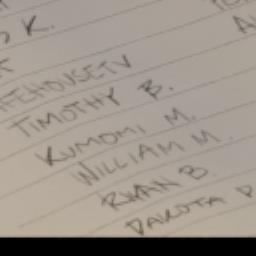 K.
TIMOTHY B.
KUMOMI M.
WILLIAM M.
RYAN B.
DAKOTA P